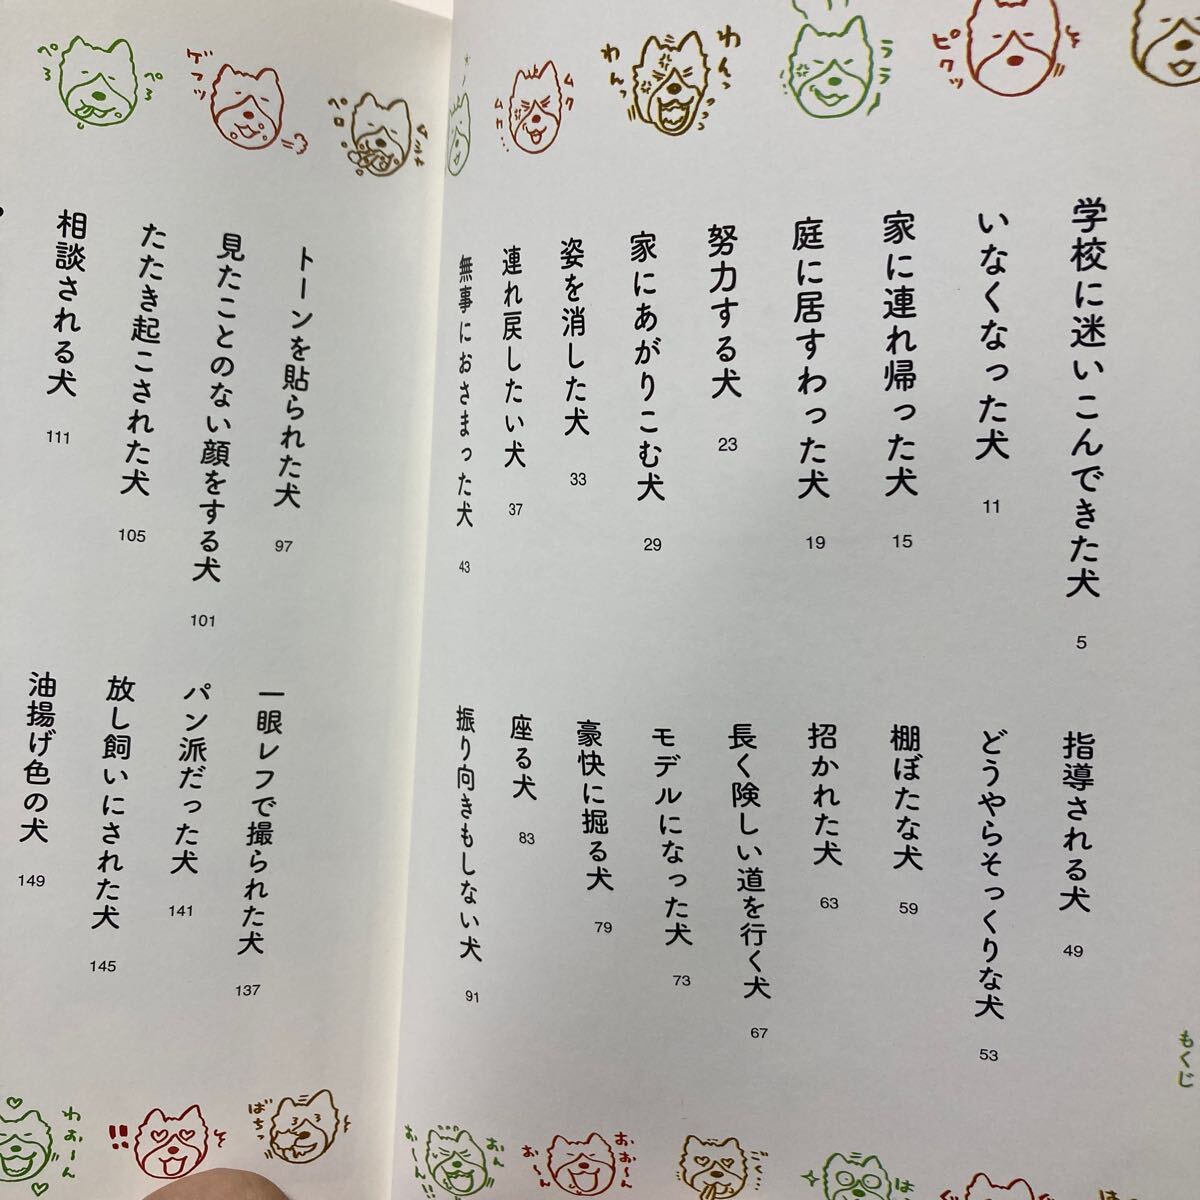 もくじ
学校に迷いこんできた犬 5
いなくなった犬 11
家に連れ帰った犬 15
庭に居すわった犬 19
努力する犬 23
家にあがりこむ犬 29
姿を消した犬 33
連れ戻したい犬 37
無事におさまった犬 43
指導される犬 49
どうやらそっくりな犬 53
棚ぼたな犬 59
招かれた犬 63
長く険しい道を行く犬 67
モデルになった犬 73
豪快に掘る犬 79
座る犬 83
振り向きもしない犬 91
トーンを貼られた犬 97
見たことのない顔をする犬 101
たたき起こされた犬 105
相談される犬 111
一眼レフで撮られた犬 137
パン派だった犬 141
放し飼いにされた犬 145
油揚げ色の犬 149
ピクッ
わんっ
わんっ
ムク
ムク…
ペロ
ゲフッ
ぺろ
ぺろ
わぉーん
!!
ばちっ
おぉーん